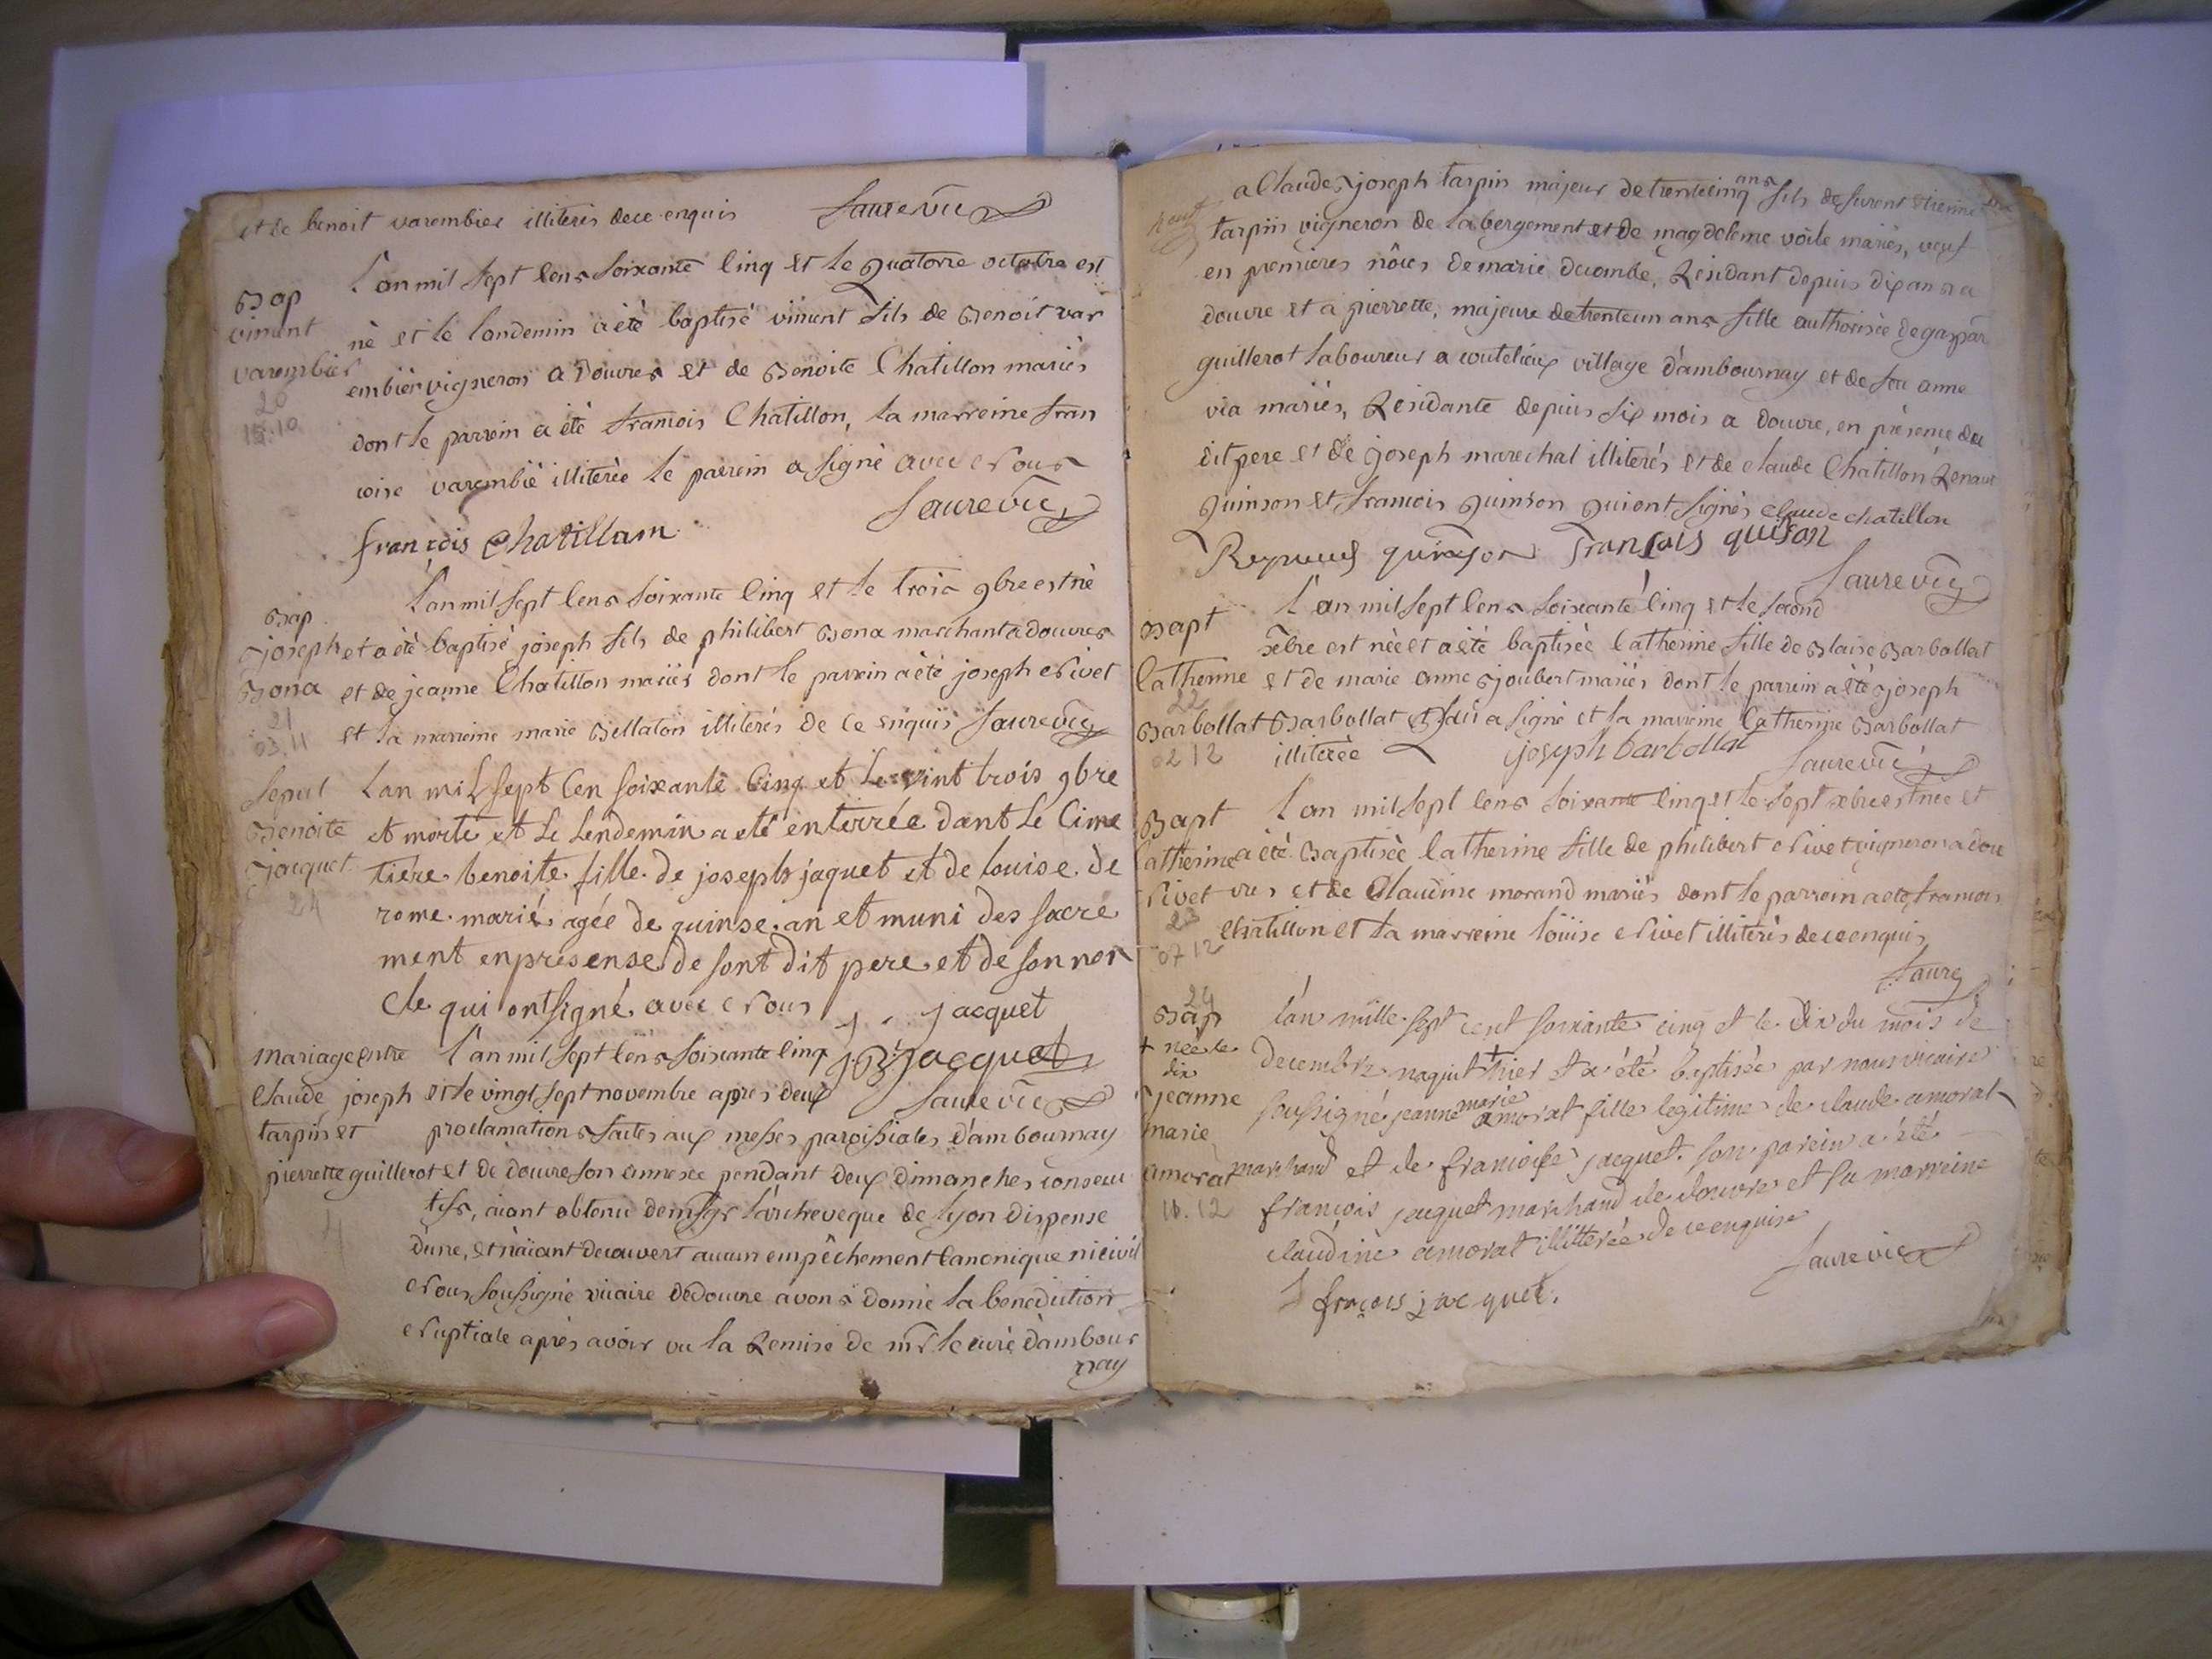 et de benoit varembier illiterés de ce enquis Faure vic
Bap
vincent
varembier
20
15.10
L'an mil sept cens soixante cinq et le quatorze octobre est
né et le landemin a été baptisé vincent fils de Benoit var
embier vigneron a douvres et de Benoite Chatillon mariés
dont le parrein a été francois Chatillon, la marreine fran
coise varembié illiterée le parrein a signé avec Nous
françois Chatillam Faure vic
Bap
joseph
Bona
21
03.11
L'an mil sept cens soixante cinq et le trois 9bre est né
et a été baptisé joseph fils de philibert Bona marchant a douvres
et de jeanne Chatillon mariés dont le parrein a été joseph Nivet
et la marreine marie Billaton illiterés de ce enquis Faure vic
sepul
Benoite
jacquet
24
Lan mil sept Cen soixante Cinq et Le vint trois 9bre
et morte et Le Lendemin a eté entérrée dant Le Cime
tiére benoite fille de joseph jaquet et de louise de
rome marié agée de quinse an et muni des sacre
ment en présense de sont dit pere et de son non
cle qui ont signé avec Nous j. jacquet
j B jacquet
Faure vic
mariage entre
Claude joseph
tarpin et
pierrette guillerot
4
L'an mil sept cens soixante cinq
et le vingt sept novembre apres deux
proclamations faites aux messes paroissiales d'ambournay
et de douvre son annexe pendant deux dimanches consecu
tifs, aiant obtenu de msgr l'archeveque de lyon dispense
d'une, et n'aiant decouvert aucun empêchement canonique ni civil
Nous soussigné vicaire de douvre avons donné la benediction
Nuptiale aprés avoir vu la Remise de mr le curé d'ambour
nay
a Claude joseph tarpin majeur de trentecinq ans fils de furent etienne
tarpin vigneron de la bergement et de magdeleine voile mariés, veuf
en premieres nôces de marie decombe, Residant depuis dix ans a
douvre et a pierrette, majeure de trenteun ans fille authorisée de gaspar
guillerot laboureur a coutelieux village d'ambournay et de feu anne
via mariés, Residante depuis six mois a douvre, en présence du
dit pere et de joseph marechal illiterés et de claude Chatillon Renaud
quinson et francois quinson qui ont signés claude chatillon
Reynaud quinson François quison
Faure vic
Bapt
Catherine
22
Barbollat
02 12
L'an mil sept cens soixante cinq et le second
xbre est née et a été baptisée Catherine fille de Blaise Barbollat
et de marie anne joubert mariés dont le parrein a été joseph
Barbollat qui a signé et la marreine Catherine Barbollat
illiterée joseph barbollat Faure vic
Bapt
Catherine
Nivet
23
07 12
L'an mil sept cens soixante cinq et le sept xbre est née et
a été Baptisée Catherine fille de philibert Nivet vigneron a dou
vres et de Claudine morand mariés dont le parrein a eté francois
Chatillon et la marreine loüise Nivet illiterés de ce enquis
Faure
24
Bap
+ née le
dix
jeanne
marie
amorat
10.12
L'an mille sept cent soixante cinq et le dix du mois de
decembre naquit + hier et a été baptisée par nous vicaire
soussigné jeanne marie amorat fille legitime de claude amorat
marchand et de francoise jacquet. son parein a été
francois jacquet marchand de douvre et sa marreine
claudine amorat illiterée de ce enquise
Faure vic
françois jacquet.